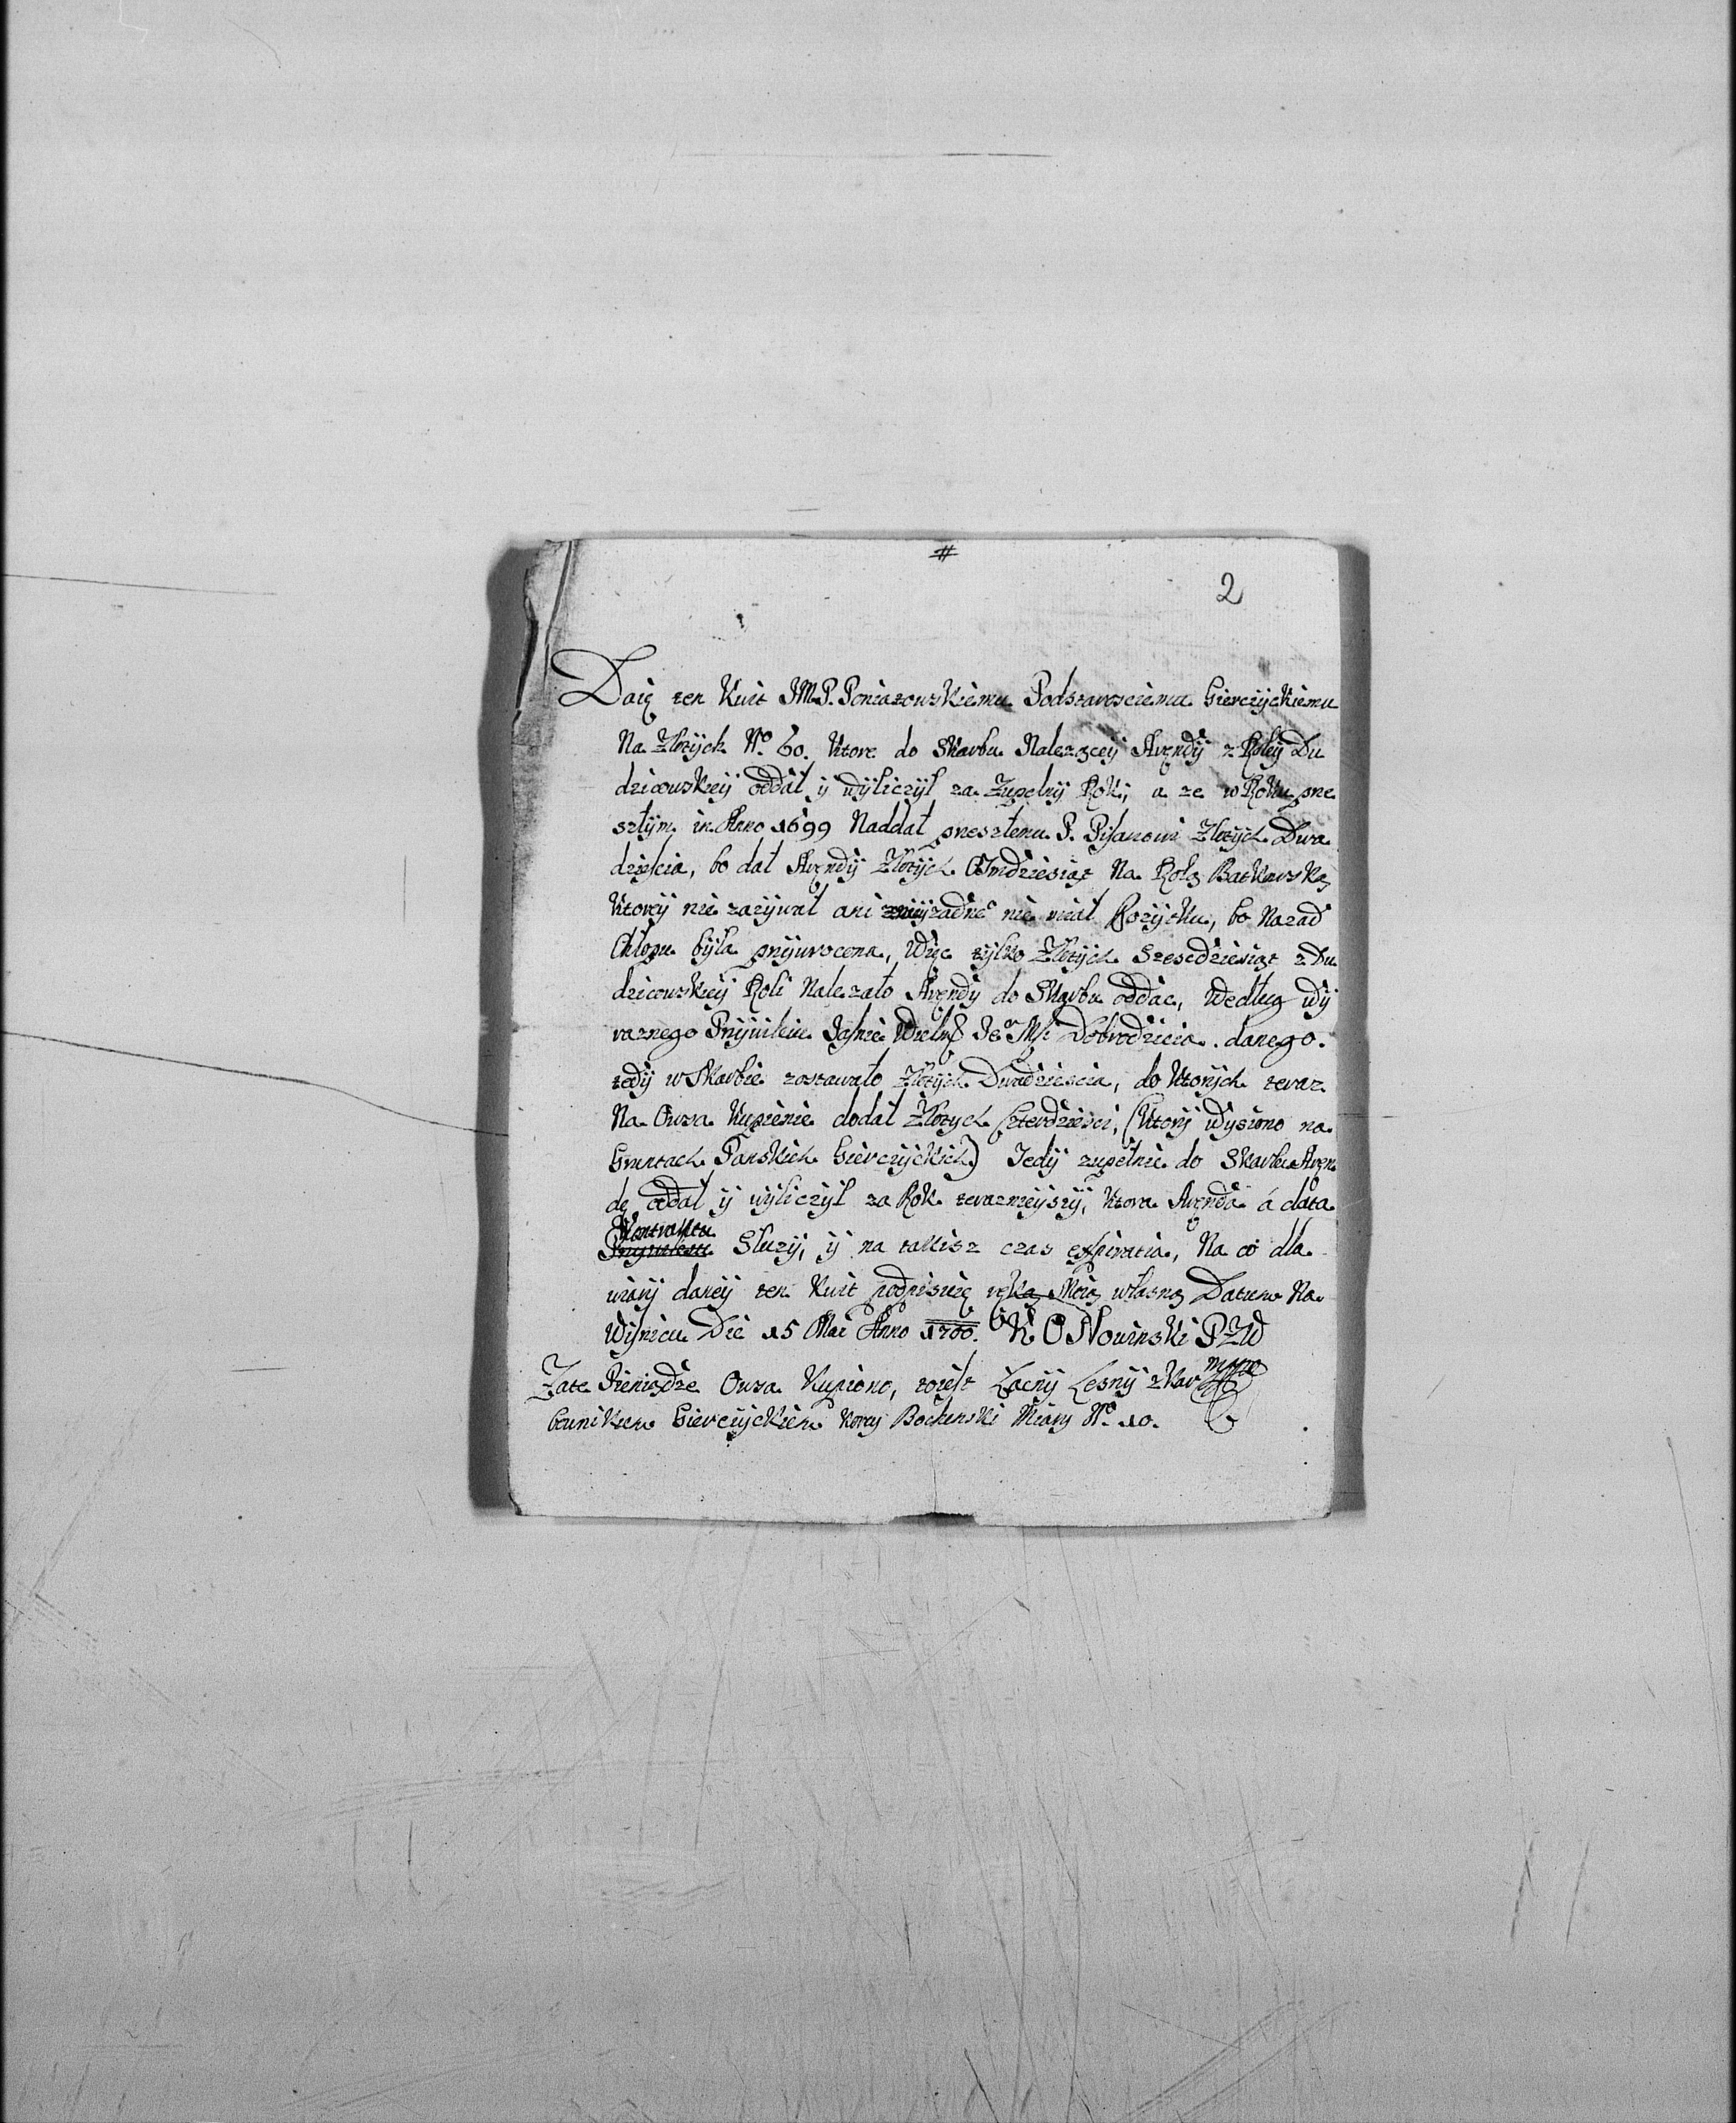 #
2
Daię ten Kwit JMP. Poniatowskiemu Podstarosciemu Gierczyckiemu
Na Złotych No 60. Ktore do Skarbu Nalezącey Arędy z Roley Du
dzicowskiey oddał y wyliczył za Zupełny Rok; a ze w Roku prze
szłym in Anno 1699 Naddał przeszłemu P. Pisarzowi Złotych Dwa
dziescia, bo dał Arędy Złotych Osmdziesiąt Na Rolą Batkowską
Ktorey nie zazywał ani zniey zadne nie miał Pozytku, bo Nazad
Chłopu była przywrocona, Więc tylko Złotych Szescdziesiąt z Du
dzicowskiey Roli Nalezało Arędy do Skarbu oddac, Według wy
raznego Przywileiu Jasnie Wielmo Je Mści Dobrodzieia danego.
tedy w Skarbie zostawało Złotych Dwadziescia, do Ktorych teraz
Na Owsa Kupienie dodał Złotych Czterdziesci, (Ktory wysiono na
Gruntach Panskich Gierczyckich) Tedy zupełnie do Skarbu Aręn
dę oddał y wyliczył za Rok teraznieyszy, Ktora Arędа á data
Kontraktu
Przywileiu Słuzy, y na takisz czas expiratia, Na co dla
wiary daney ten Kwit podpisuię ręką Moią własną Datum Na
Wisniczu Die 15 Mai Anno 1700. K O Nowinski PZW
mpp
Zate Pieniądze Owsa Kupiono, toiest Łacny Lesny z Kar
bunikiem Gierczyckiem Korcy Bochenski Miary No 10.